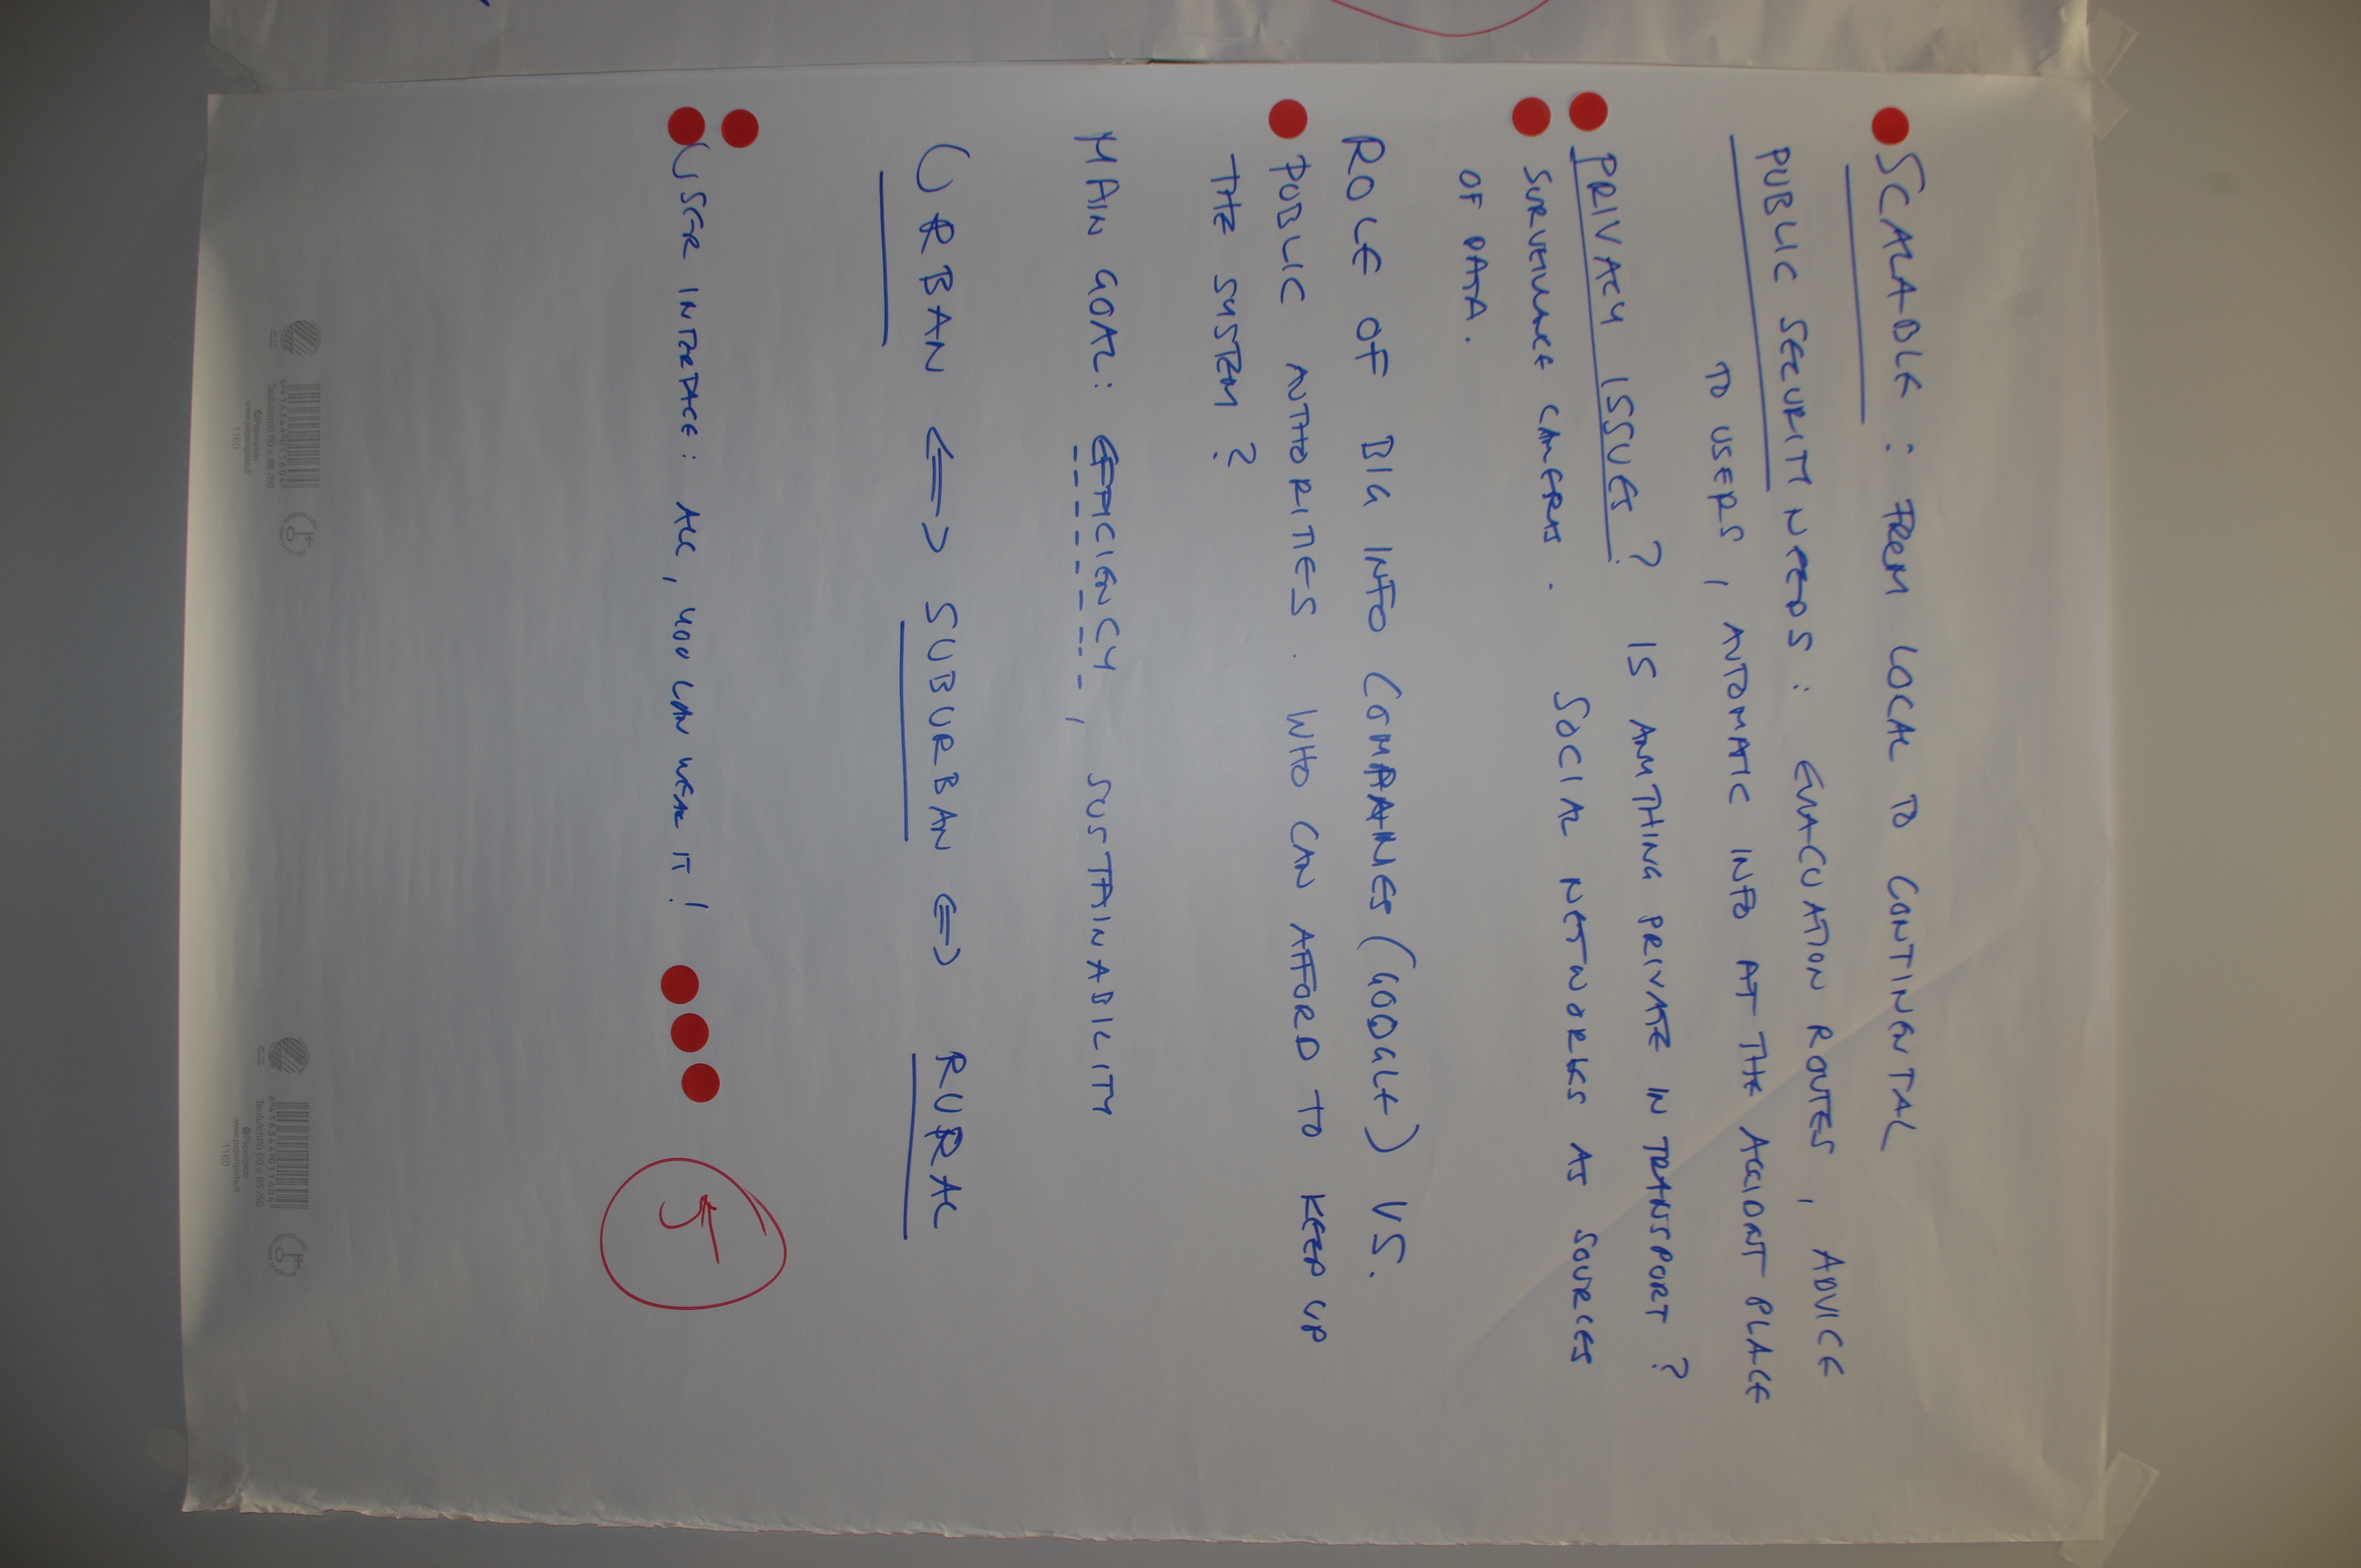 SCALABLE : FROM LOCAL TO CONTINENTAL
PUBLIC SECURITY NEEDS: EVACUATION ROUTES, ADVICE
TO USERS, AUTOMATIC INFO AT THE ACCIDENT PLACE
PRIVACY ISSUES? IS ANYTHING PRIVATE IN TRANSPORT?
SURVEILLANCE CAMERAS. SOCIAL NETWORKS AS SOURCES
OF DATA.
ROLE OF BIG INFO COMPANIES (GOOGLE) VS.
PUBLIC AUTHORITIES. WHO CAN AFFORD TO KEEP UP
THE SYSTEM?
MAIN GOAL: EFFICIENCY, SUSTAINABILITY
URBAN <=> SUBURBAN <=> RURAL
USER INTERFACE: ALL, YOU CAN WEAR IT!
5